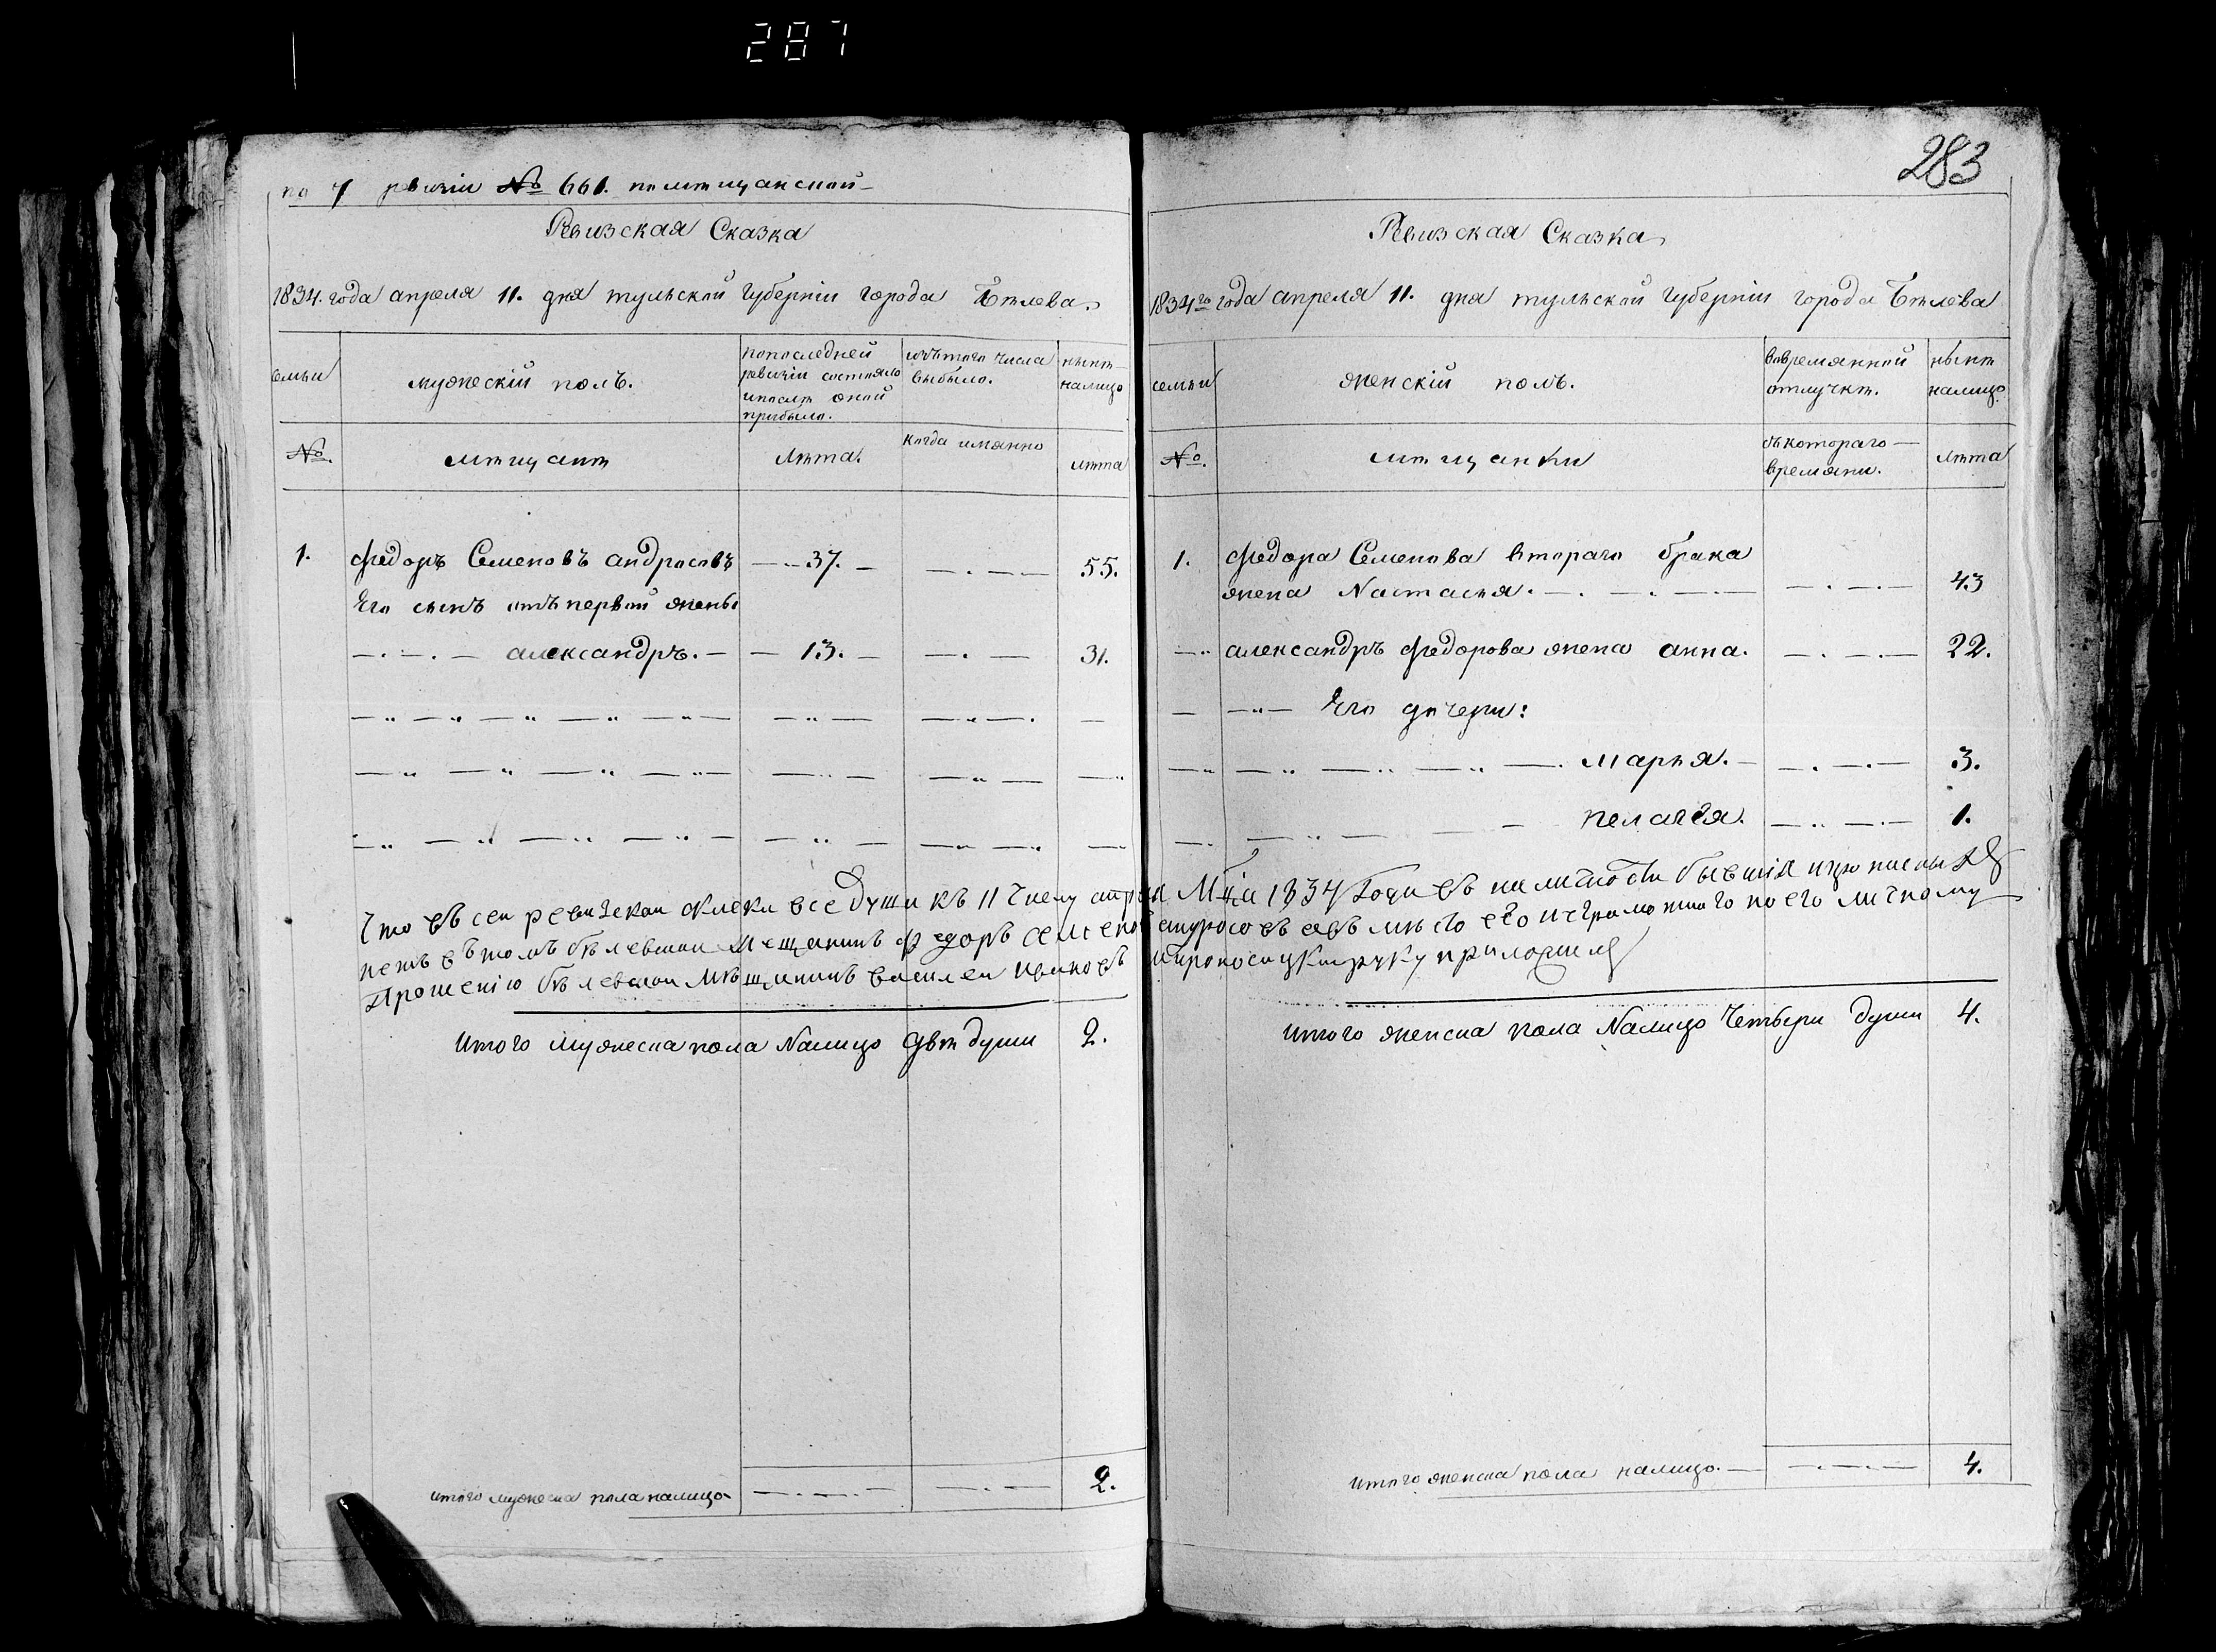 287
283
по 7 ревизіи № 661. помѣщанской
Ревизская Сказка
1834. года апреля 11. дня тульской губерніи города Бѣлева.
семьи
мужескій полъ.
попоследней ревизіи состояло ипослѣ оной прибыло.
изътого числа выбыло.
нынѣ налицо
№.
мѣщанѣ
лѣта.
когда имянно
лѣта
1. Федоръ Семеновъ андросовъ — 37. — 55.
Его сынъ отъ первой жены
александръ. — 13. — 31.
Ревизская Сказка
1834го года апреля 11. дня тульской губерніи города Бѣлева
семьи
женскій полъ.
вовремянной отлучкѣ.
нынѣ налицо
№.
мѣщанки
съкотораго времяни.
лѣта
1. Федора Семенова втораго брака
жена Настасья. 43
александръ Федорова жена анна. 22.
Его дочери:
марья. 3.
пелагея. 1.
Что въ сеи ревизскои скаски все души къ 11 числу апреля Мца 1834 Года въ наличности бывшия
въ томъ белевскои мещанинъ Федоръ семеновъ андросовъ авъ мѣсто его неграмотнаго по его личному
Прошению белевскои мѣщанинъ василеи ивановъ руку приложилъ
итого мужеска пола Налицо двѣ души 2.
итого женска пола Налицо Четвери души 4.
итого мужеска пола налицо 2.
итого женска пола налицо. 4.